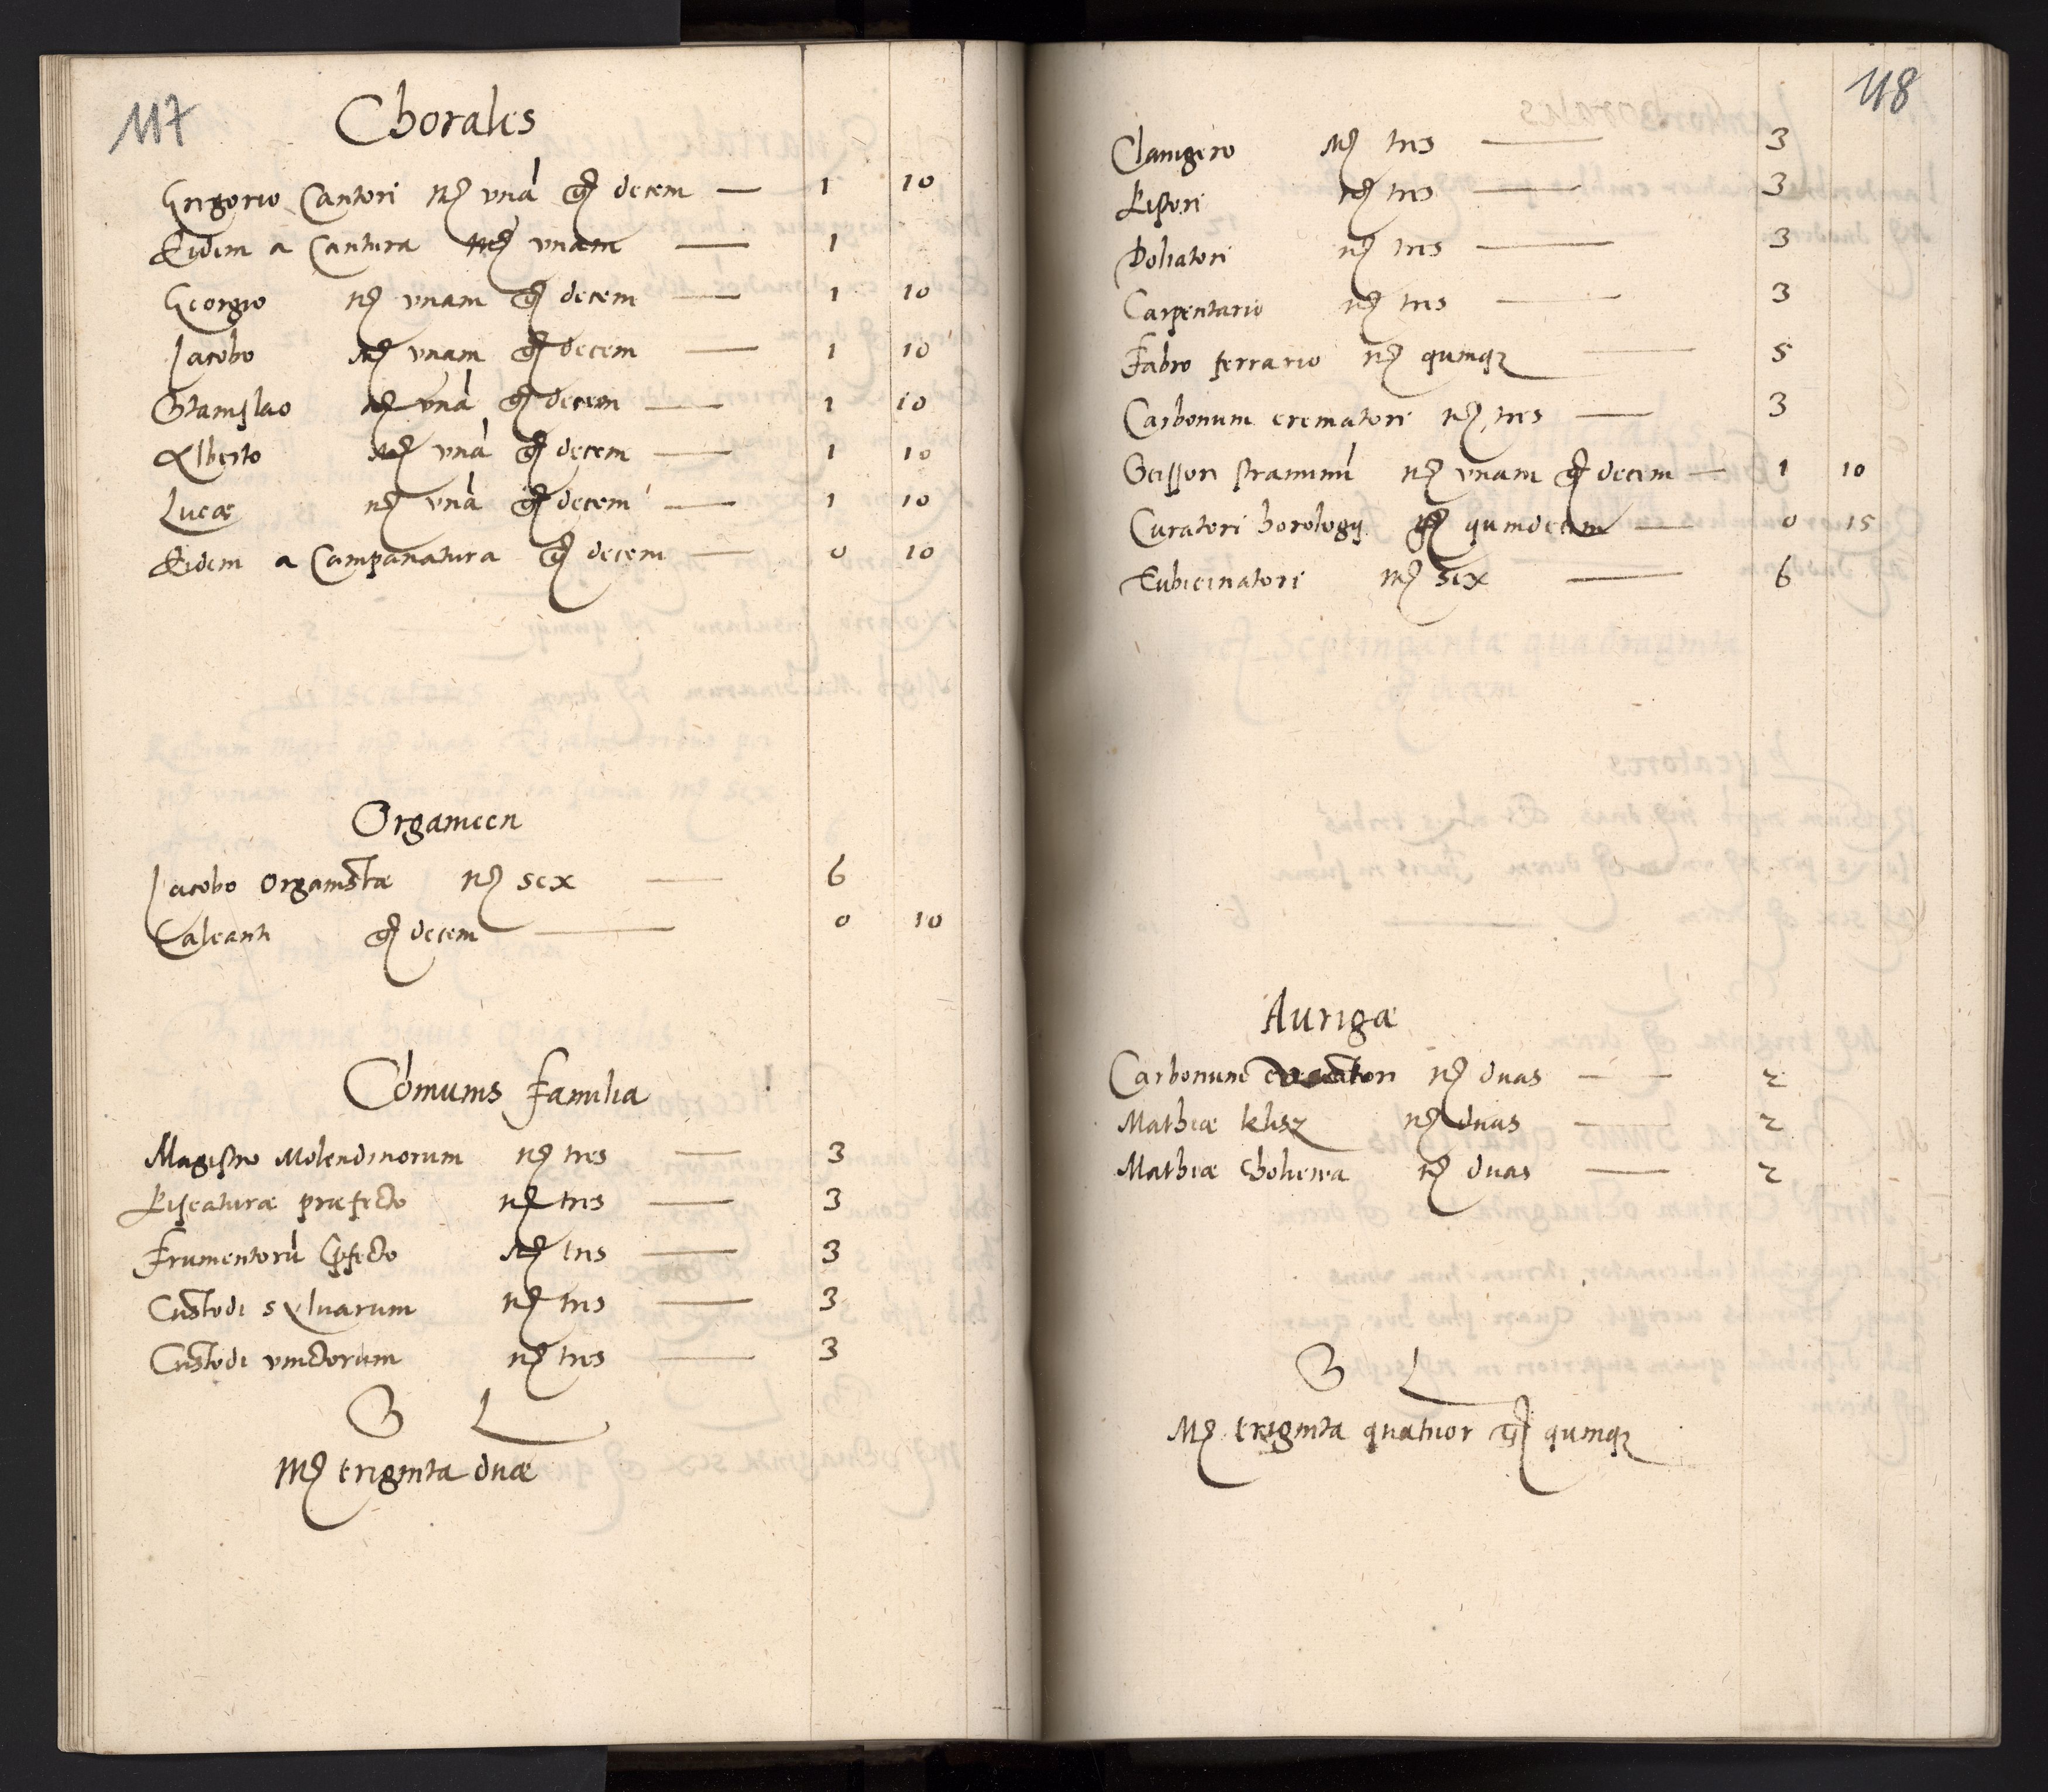 117
Chorales
Grigorio Cantori mȝ vnā gͬ decem — 1 10
Eidem a Cantura mȝ vnam — 1
Georgio mȝ vnam gͬ decem — 1 10
Jacobo mȝ vnam gͬ decem — 1 10
Stanislao mȝ vnā gͬ decem — 1 10
Alberto mȝ vnā gͬ decem — 1 10
Lucæ mȝ vnā gͬ decem — 1 10
Eidem a Campanatura gͬ decem — 0 10
Organicen
Jacobo organistæ mȝ sex — 6
Calcanti gͬ decem — 0 10
Cōmunis familia
Magistro Molendinorum mȝ tres — 3
Piscaturæ præfecto mȝ tres — 3
Frumentorū p̄fecto mȝ tres — 3
Custodi sylvarum mȝ tres — 3
Custodi vinctorum mȝ tres — 3
S L
Mȝ triginta duæ
118
Clavigero mȝ tres — 3
Pistori mȝ tres — 3
Doliatori mȝ tres — 3
Carpentario mȝ tres — 3
Fabro ferrario mȝ quinqȝ — 5
Carbonum crematori mȝ tres — 3
Scissori straminū mȝ vnam gͬ decem — 1 10
Curatori horologij gͬ quindecim — 0 15
Tubicinatori mȝ sex — 6
Aurigæ
Carbonum mȝ duas — 2
Mathiæ klisz mȝ duas — 2
Mathiæ mȝ duas — 2
S L
Mȝ triginta quatuor gͬ quinqȝ